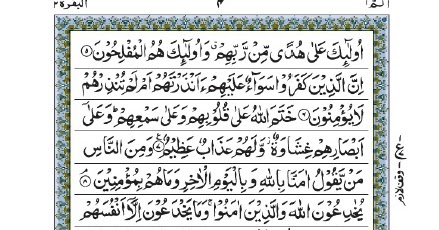 البقرة ٢ ٤ الٓمّٓ ١
اُولٰٓئِكَ عَلٰى هُدًى مِّنْ رَّبِّهِمْ ۙ وَاُولٰٓئِكَ هُمُ الْمُفْلِحُوْنَ ۝۵
اِنَّ الَّذِيْنَ كَفَرُوْا سَوَآءٌ عَلَيْهِمْ ءَاَنْذَرْتَهُمْ اَمْ لَمْ تُنْذِرْهُمْ
لَا يُؤْمِنُوْنَ ۝۶ خَتَمَ اللّٰهُ عَلٰى قُلُوْبِهِمْ وَعَلٰى سَمْعِهِمْ ؕ وَعَلٰٓى
اَبْصَارِهِمْ غِشَاوَةٌ ؗ وَّلَهُمْ عَذَابٌ عَظِيْمٌ ۝۷ وَمِنَ النَّاسِ
مَنْ يَّقُوْلُ اٰمَنَّا بِاللّٰهِ وَبِالْيَوْمِ الْاٰخِرِ وَمَا هُمْ بِمُؤْمِنِيْنَ ۝۸
يُخٰدِعُوْنَ اللّٰهَ وَالَّذِيْنَ اٰمَنُوْا ۚ وَمَا يَخْدَعُوْنَ اِلَّاۤ اَنْفُسَهُمْ
وقف لازم